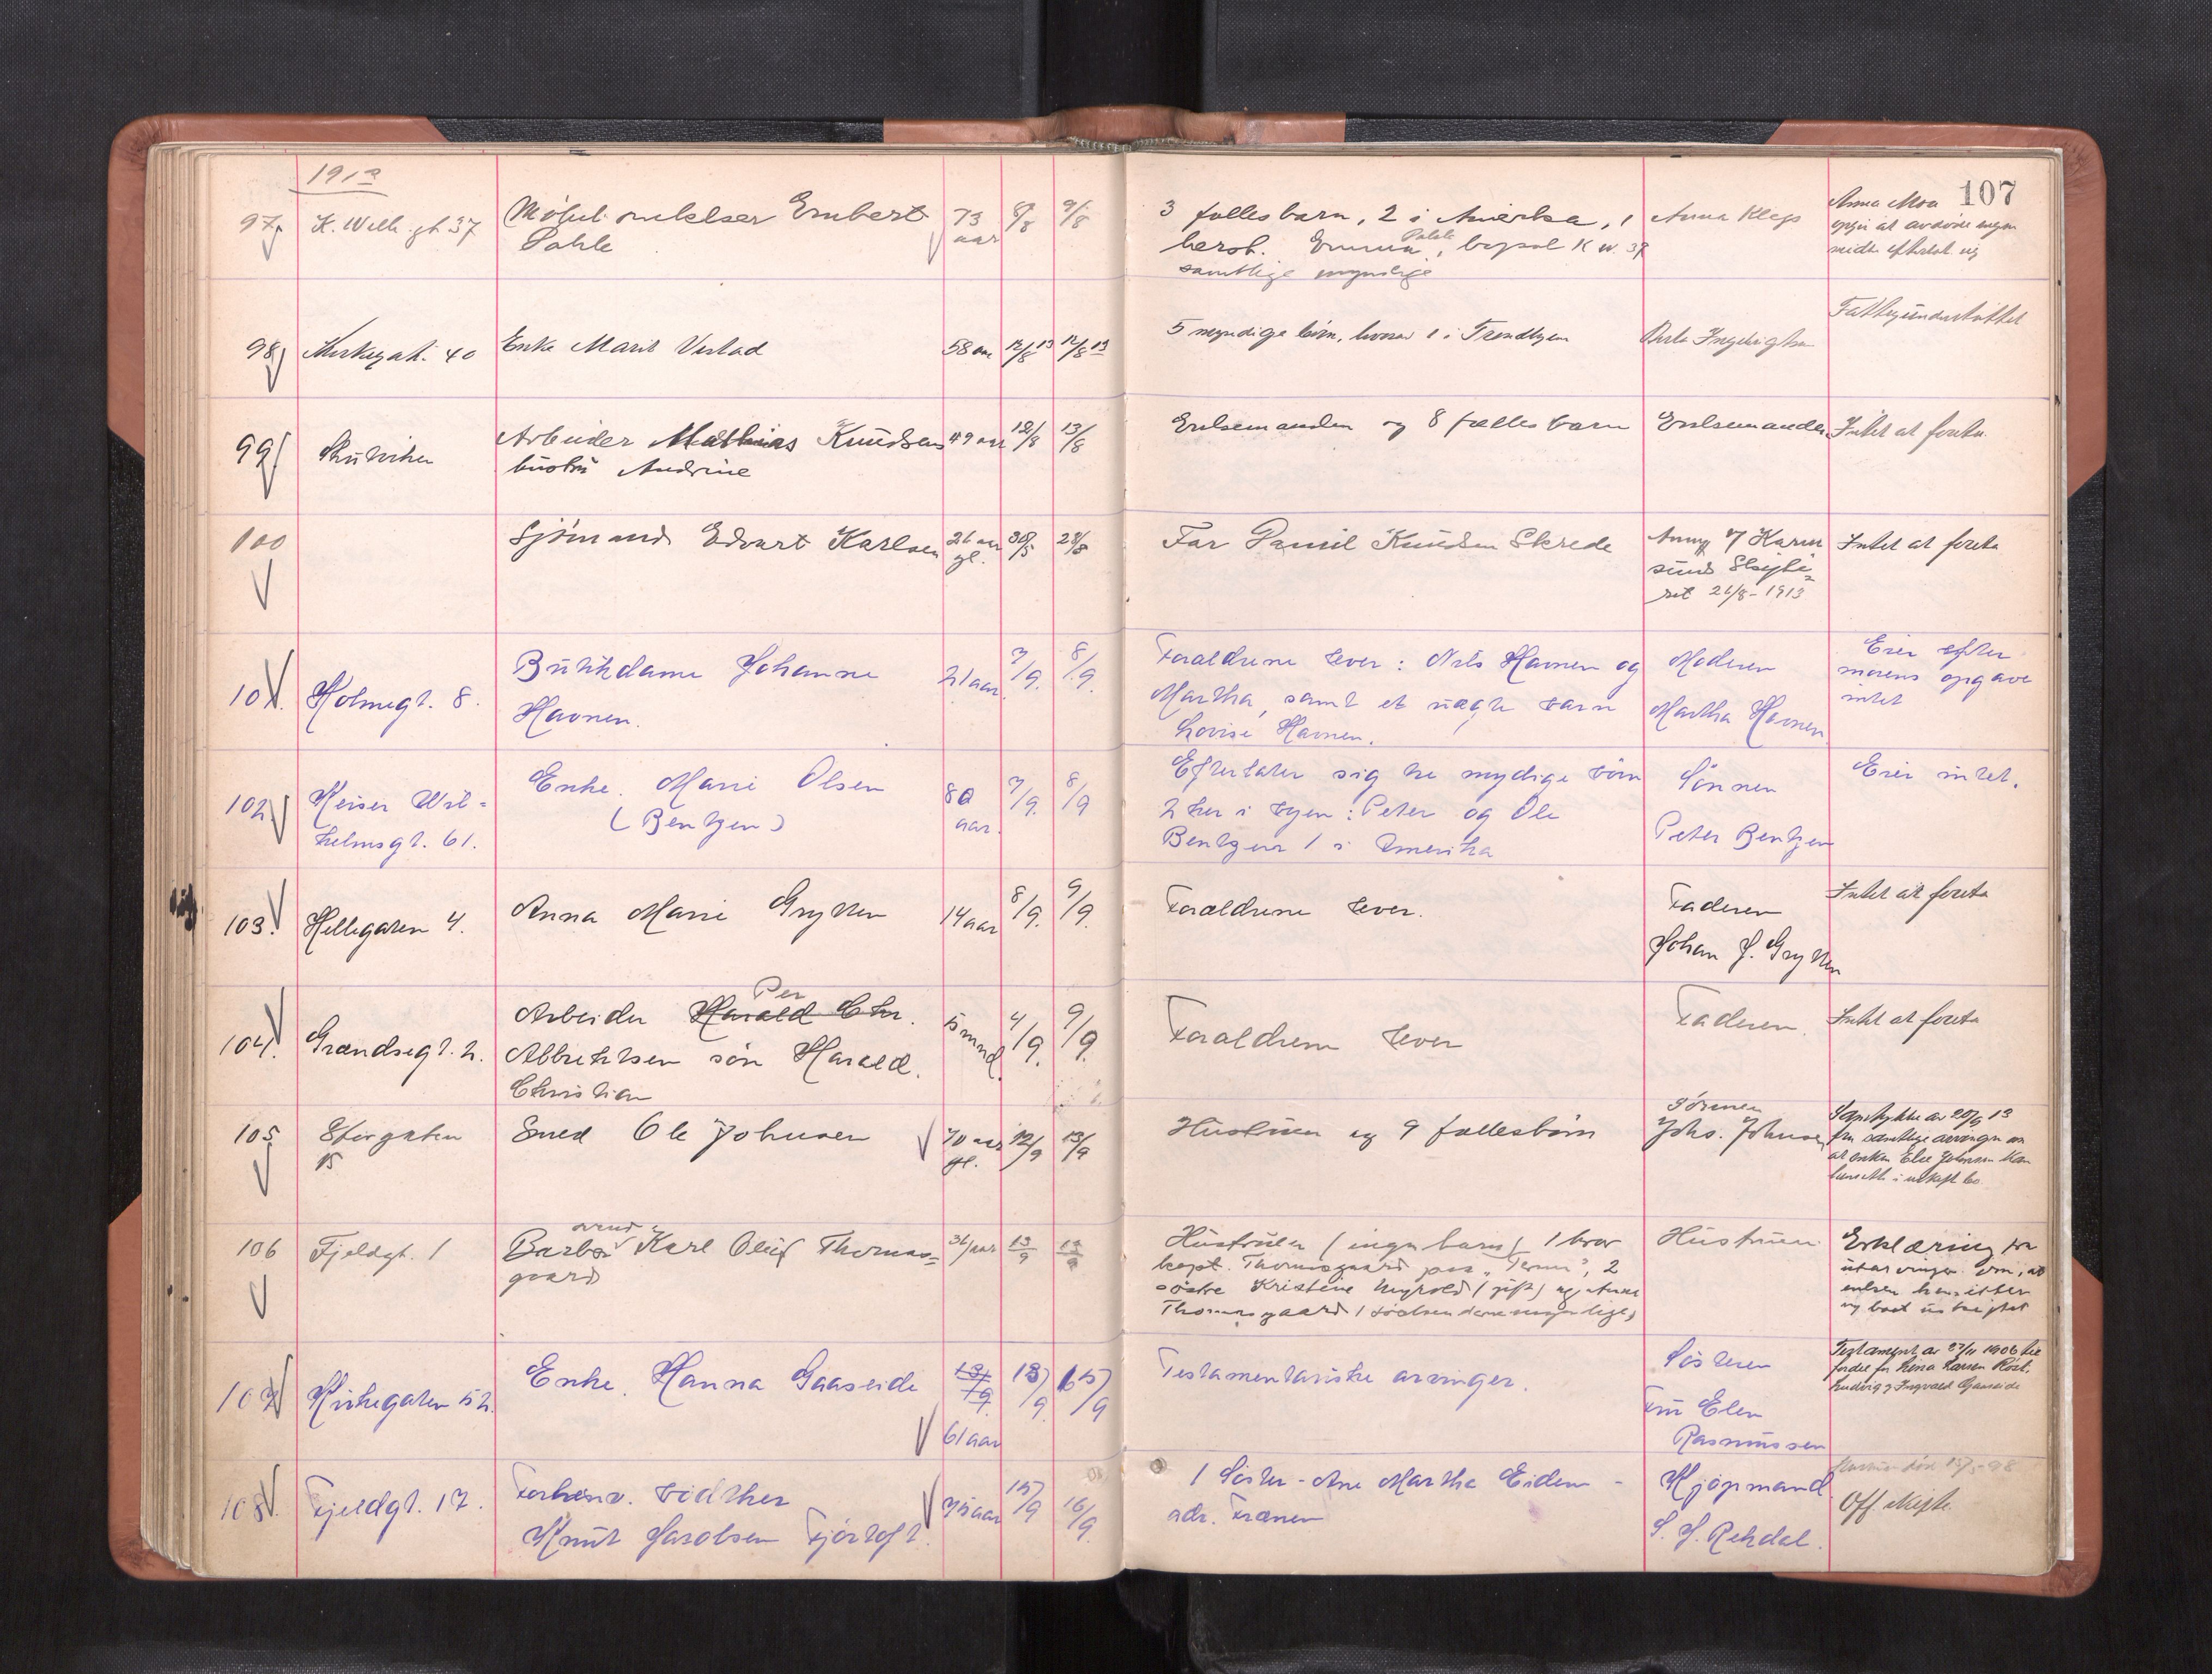 1913
107
97
K. Wilh. gt 37
Møbelsnekker Ernbert
Pahle
73
aar
8/8
9/8
3 fælles barn, 2 i Amerika, 1
herst. Emma Pahle, bopæl K W. 37
samtlige myndige
Anna Klegs
Anna Moa
opgir at avdøde ingen
midler efterlot sig
98
Kirkegat. 40
Enke Marit Vestad
58 aar
12/8 13
12/8 13
5 myndige børn, hvorav 1 i Trondhjem
Ingebrigtsen
Fattigunderstøttet
99
Skutviken
Arbeider Mathias Knudsens
hustru Andrine
49 aar
12/8
13/8
Enkemanden og 8 fælles barn
Enkemanden
Intet at foreta
100
Sjømand Edvart Karlsen
26 aar
gl.
30/5
28/8
Far Daniel Knudsen Skrede
Anmg. f Karm
sund Skifte
ret 26/8-1913
Intet at foreta
101.
Holmegt. 8.
Butikdame Johanne
Havnen.
21 aar.
7/9.
8/9.
Foraldrene lever: Nils Havnen og
Martha, samt et uægte barn
Lovise Havnen.
Moderen
Martha Havnen
Eier efter
morens opgave
intet
102
Keiser Wil-
helmsgt. 61.
Enke. Marie Olsen
(Bentzen)
80
aar.
7/9.
8/9
Efterlater sig tre mydige børn
2 her i byen: Peter og Ole
Bentzen 1 i Amerika
Sønnen
Peter Bentzen
Eier intet.
103.
Hellegaten 4.
Anna Marie Grytten
14 aar
8/9.
9/9.
Foraldrene lever.
Faderen
Johan J. Grytten
Intet at foreta
104.
Grændsegt. 2.
Per
Arbeider Harald Chr.
Albrektsen søn Harald.
Christian
5 mnd.
4/9.
9/9.
Foraldrene lever
Faderen.
Intet at foreta
105
Storgaten
15
Smed Ole Johnsen
70 aar
gl.
12/9
13/9
Hustruen og 9 fællesbørn
Sønnen
Johs. Johnsen
Samtykke av 20/9 13
fra samtlige arvinger om
at enken Else Johnsen kan
hensitte i uskiftet bo
106
Fjeldgt. 1
Barber Karl Oluf Thomas-
gaard
36 aar
13/9
13/9
Hustruen (ingen barn) 1 bror
kapt. Thomsgaard paa "Terna", 2
søstre Kristine Myrvold (gift) og Anna
Thomsgaard (sødsken derne myndige)
Hustruen
Erklæring fra
utarvinger om, at
enken hensitter
og boet uskiftet
107
Kirkegaten 52.
Enke. Hanna Gaaseide
13/9.
61 aar
13/9.
15/9
Testamentariske arvinger.
Søsteren
Fru Elen
Rasmussen
Testament av 27/11 1906 til
fordel for Lena Larsen Rost,
Ludvig og Ingvald Gaaseide
108.
Fjeldgt. 17.
Forhenv. rødker
Knut Jacobsen Fjørtoft.
75 aar
15/9
16/9.
1 Søster - Ane Martha Eidem -
adr. Frænen
Kjøpmand
S. J. Rekdal.
Off. skifte.